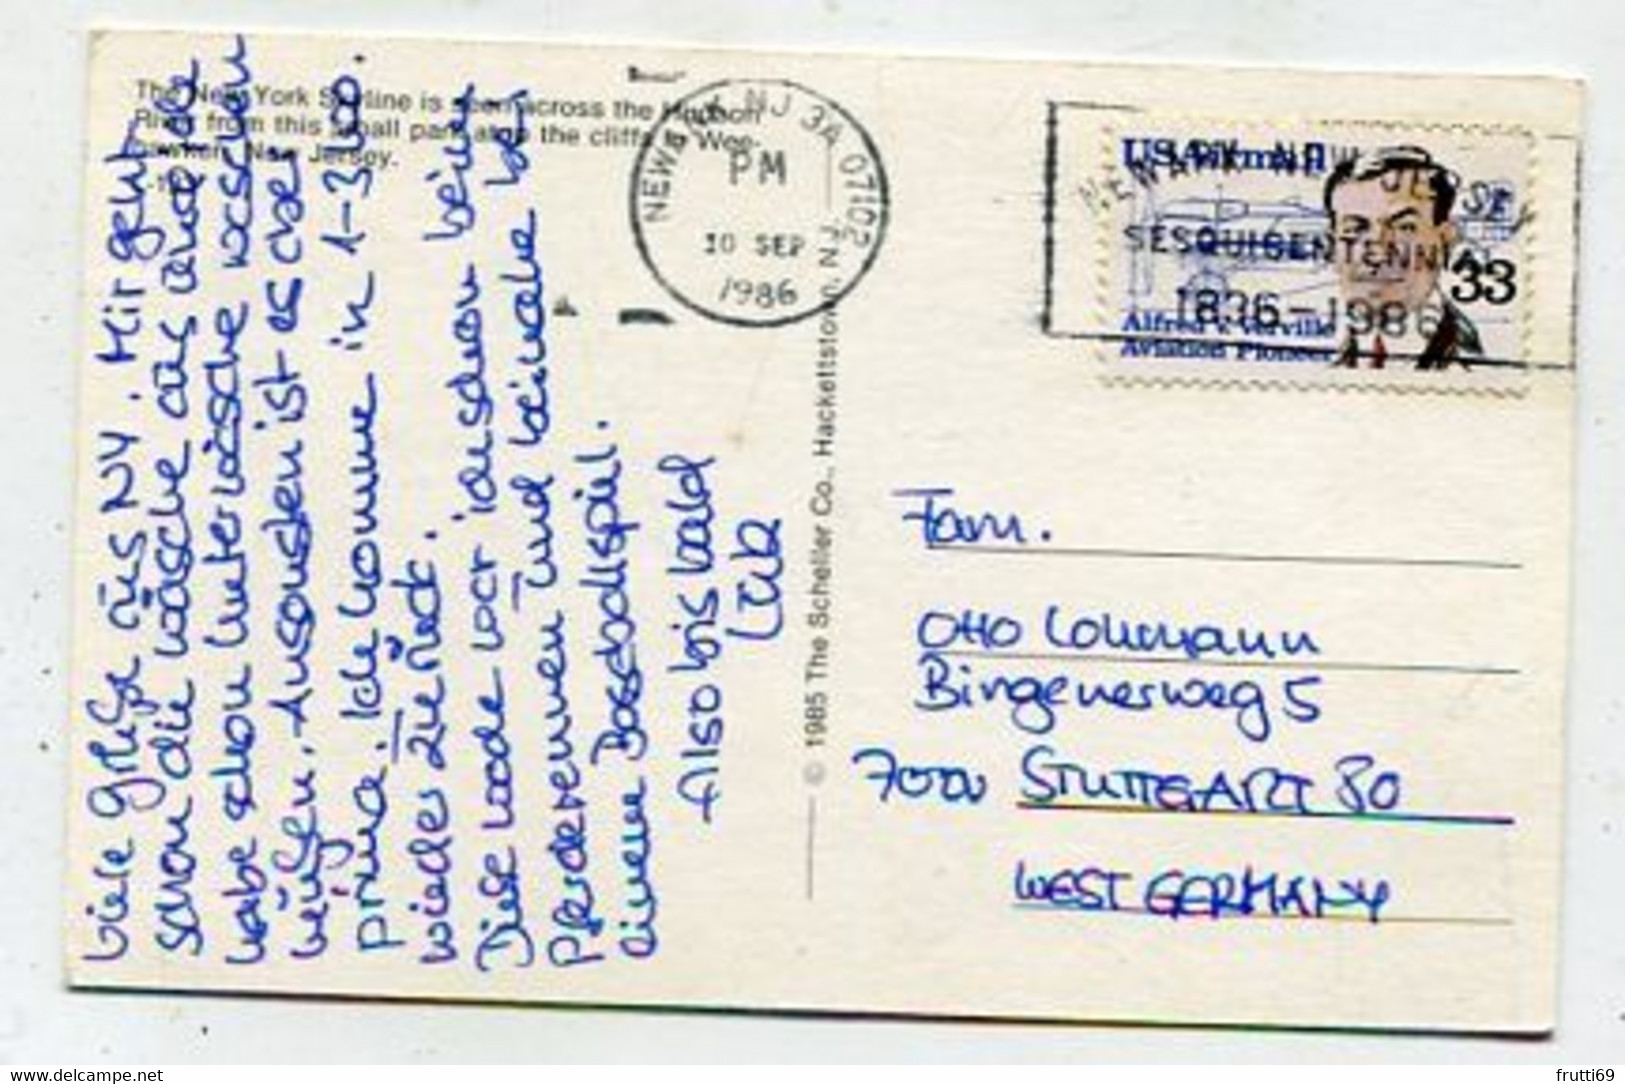 The New York Skyline is seen across the Hudson
River from this small park atop the cliffs of Wee-
hawken, New Jersey.
Viele Grüße aus NY. Mir geht
schon die Wäsche aus und
habe schon Unterwäsche waschen
müßen. Ansonsten ist es aber
prima. Ich komme in 1-3 Wo.
wieder zurück.
Diese Woche war ich schon beim
Pferderennen und beinahe bei
einem Baseballspiel.
Also bis bald
© 1985 The Scheller Co., Hackettstown, NJ
NEWARK NJ 3A 07102
PM
10 SEP
1986
NEWARK NEW JERSEY
SESQUICENTENNIAL
1836-1986
USAirmail
33
Alfred V. Verville
Aviation Pioneer
Fam.
Otto Lohmann
Bingenerweg 5
7000 STUTTGART 80
WEST GERMANY
delcampe.net
frutti69